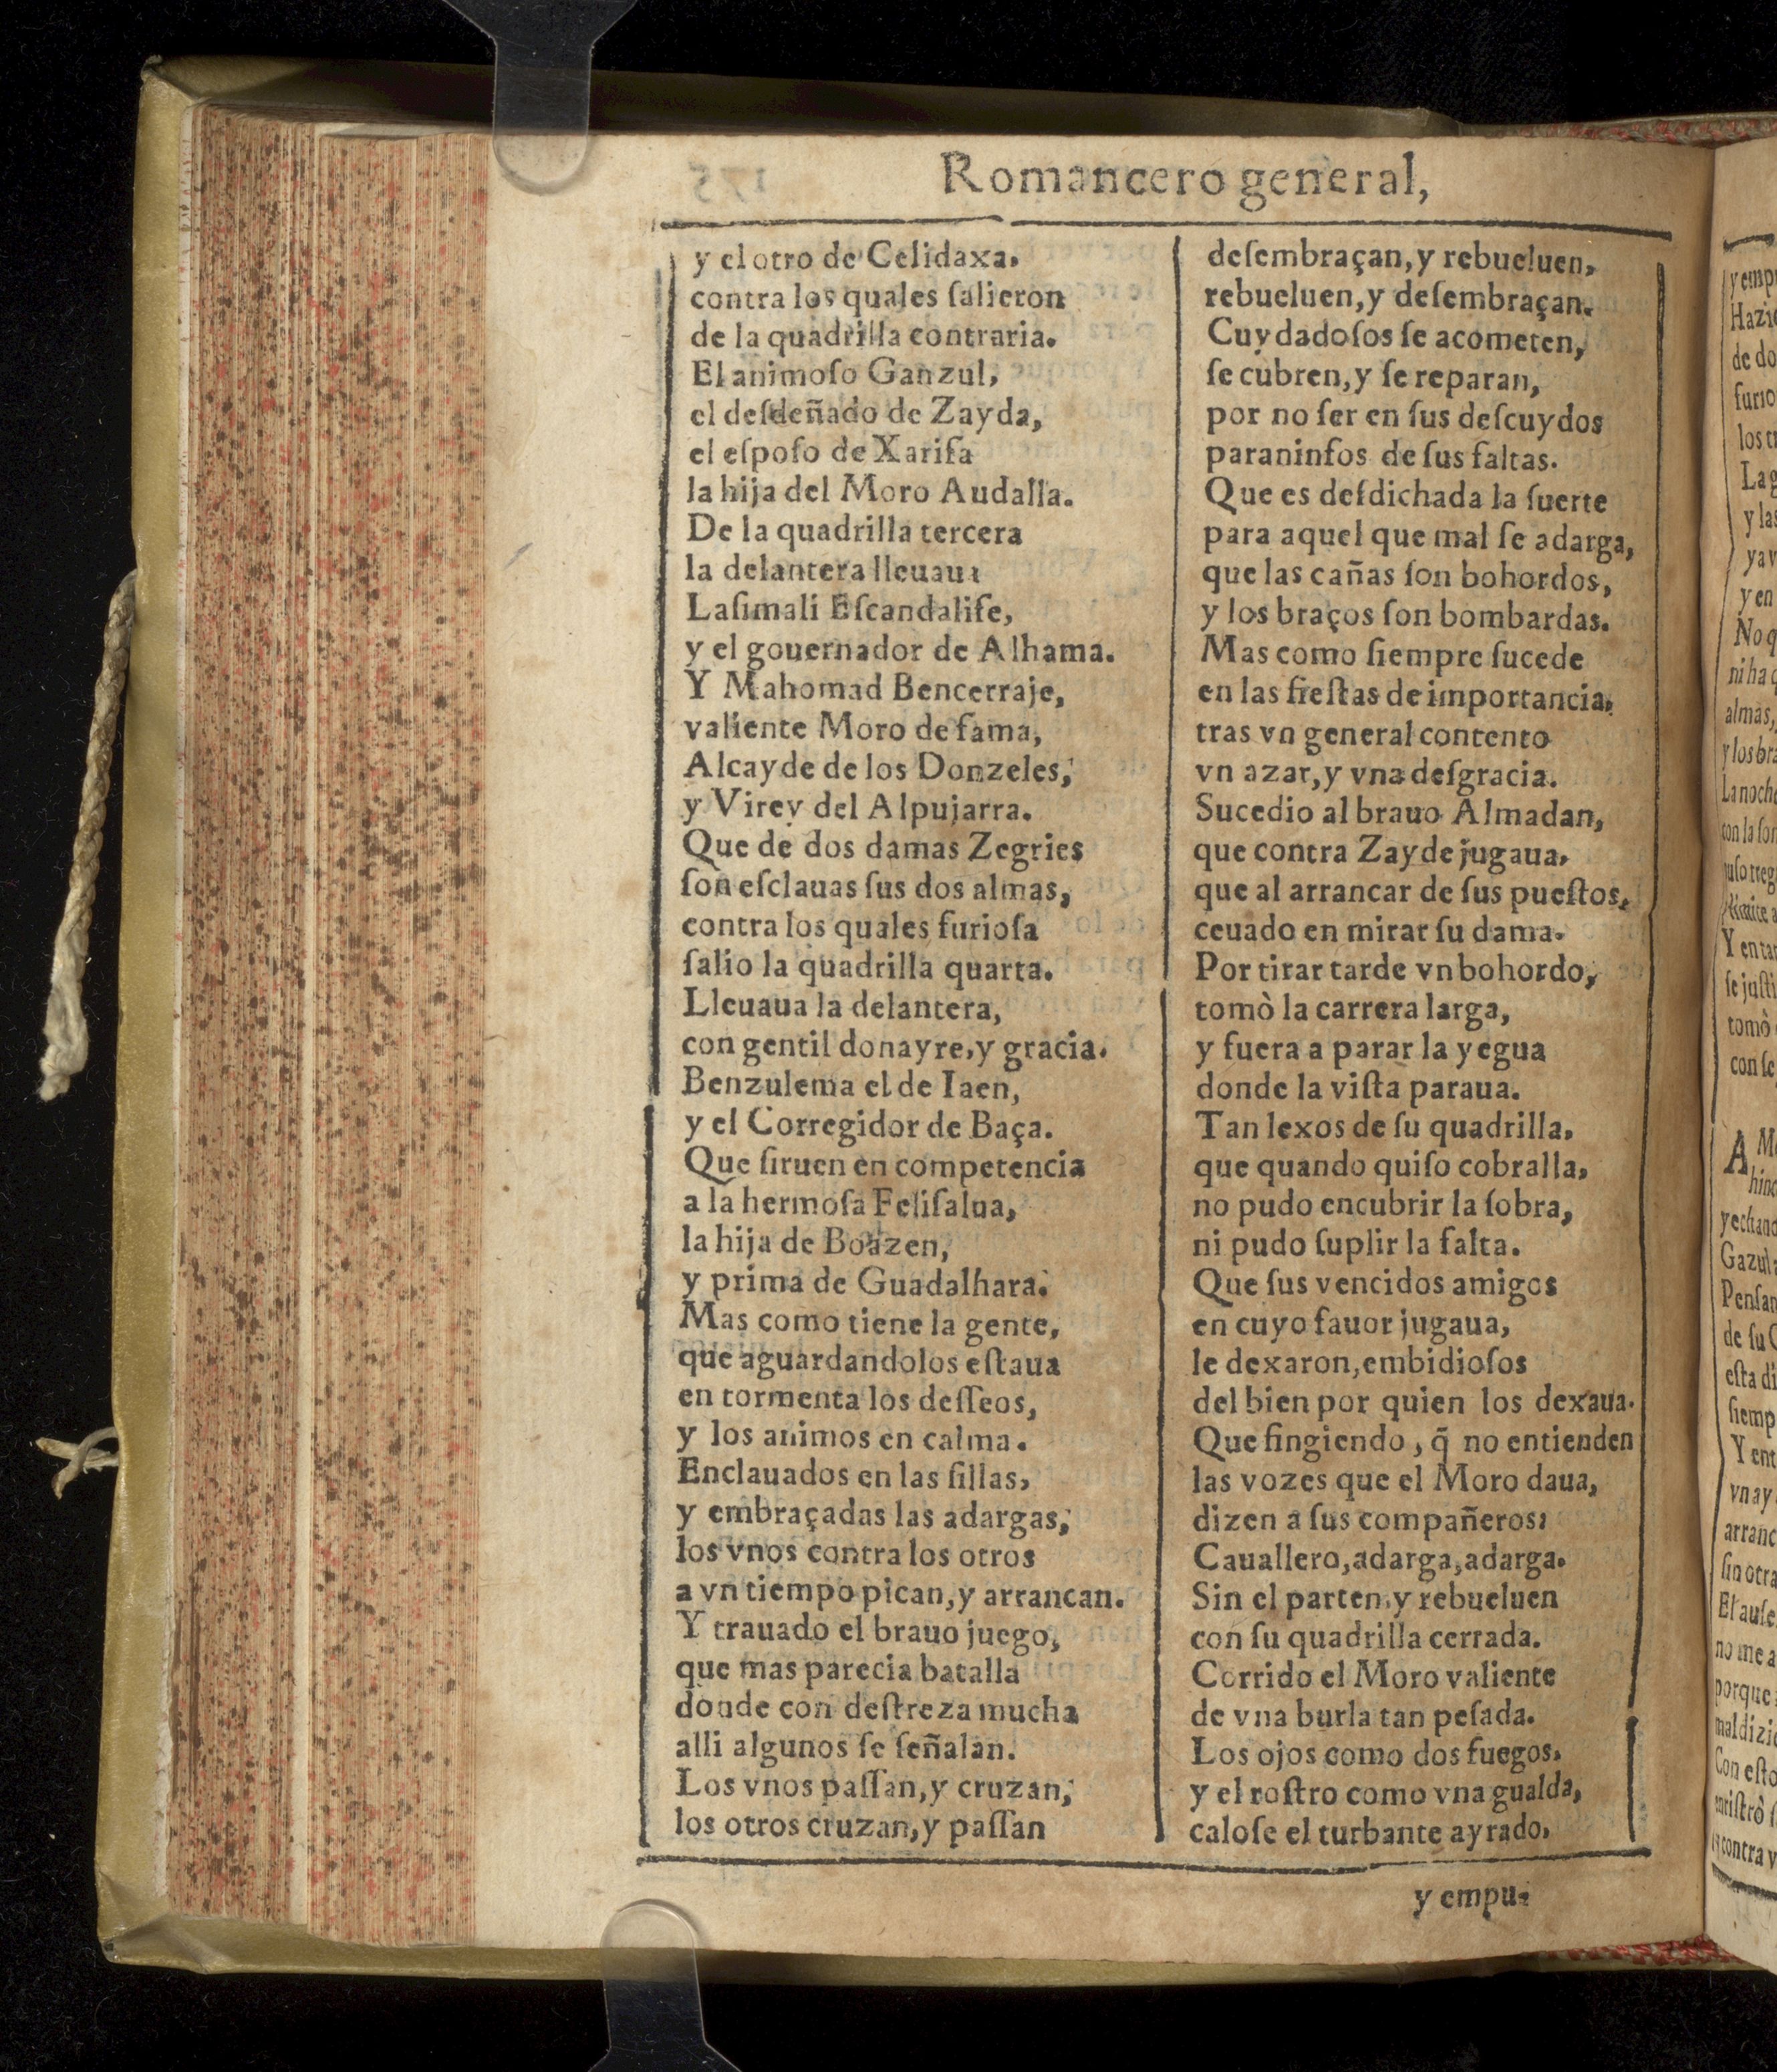 Romancero general,
y el otro de Celidaxa.
contra los quales ſalieron
de la quadrilla contraria.
El animoſo Ganzul,
el deſdeñado de Zayda,
el eſpoſo de Xarifa
la hija del Moro Audalla.
De la quadrilla tercera
la delantera lleuaua
Laſimali Eſcandalife,
y el gouernador de Alhama.
Y Mahomad Bencerraje,
valiente Moro de fama,
Alcayde de los Donzeles,
y Virey del Alpujarra.
Que de dos damas Zegries
ſon eſclauas ſus dos almas,
contra los quales furioſa
ſalio la quadrilla quarta.
Lleuaua la delantera,
con gentil donayre, y gracia.
Benzulema el de Iaen,
y el Corregidor de Baça.
Que ſiruen en competencia
a la hermoſa Feliſalua,
la hija de Boazen,
y prima de Guadalhara.
Mas como tiene la gente,
que aguardandolos eſtaua
en tormenta los deſſeos,
y los animos en calma.
Enclauados en las ſillas,
y embraçadas las adargas,
los vnos contra los otros
a vn tiempo pican, y arrancan.
Y trauado el brauo juego,
que mas parecia batalla
donde con deſtreza mucha
alli algunos ſe ſeñalan.
Los vnos paſſan, y cruzan,
los otros cruzan, y paſſan
deſembraçan, y rebueluen,
rebueluen, y deſembraçan.
Cuydadoſos ſe acometen,
ſe cubren, y ſe reparan,
por no ſer en ſus deſcuydos
paraninfos de ſus faltas.
Que es deſdichada la ſuerte
para aquel que mal ſe adarga,
que las cañas ſon bohordos,
y los braços ſon bombardas.
Mas como ſiempre ſucede
en las fieſtas de importancia,
tras vn general contento
vn azar, y vna deſgracia.
Sucedio al brauo Almadan,
que contra Zayde jugaua,
que al arrancar de ſus pueſtos,
ceuado en mirar ſu dama.
Por tirar tarde vn bohordo,
tomò la carrera larga,
y fuera a parar la yegua
donde la viſta paraua.
Tan lexos de ſu quadrilla,
que quando quiſo cobralla,
no pudo encubrir la ſobra,
ni pudo ſuplir la falta.
Que ſus vencidos amigos
en cuyo fauor jugaua,
le dexaron, embidioſos
del bien por quien los dexaua.
Que fingiendo, q̃ no entienden
las vozes que el Moro daua,
dizen a ſus compañeros:
Cauallero, adarga, adarga.
Sin el parten, y rebueluen
con ſu quadrilla cerrada.
Corrido el Moro valiente
de vna burla tan peſada.
Los ojos como dos fuegos,
y el roſtro como vna gualda,
caloſe el turbante ayrado,
y empu-